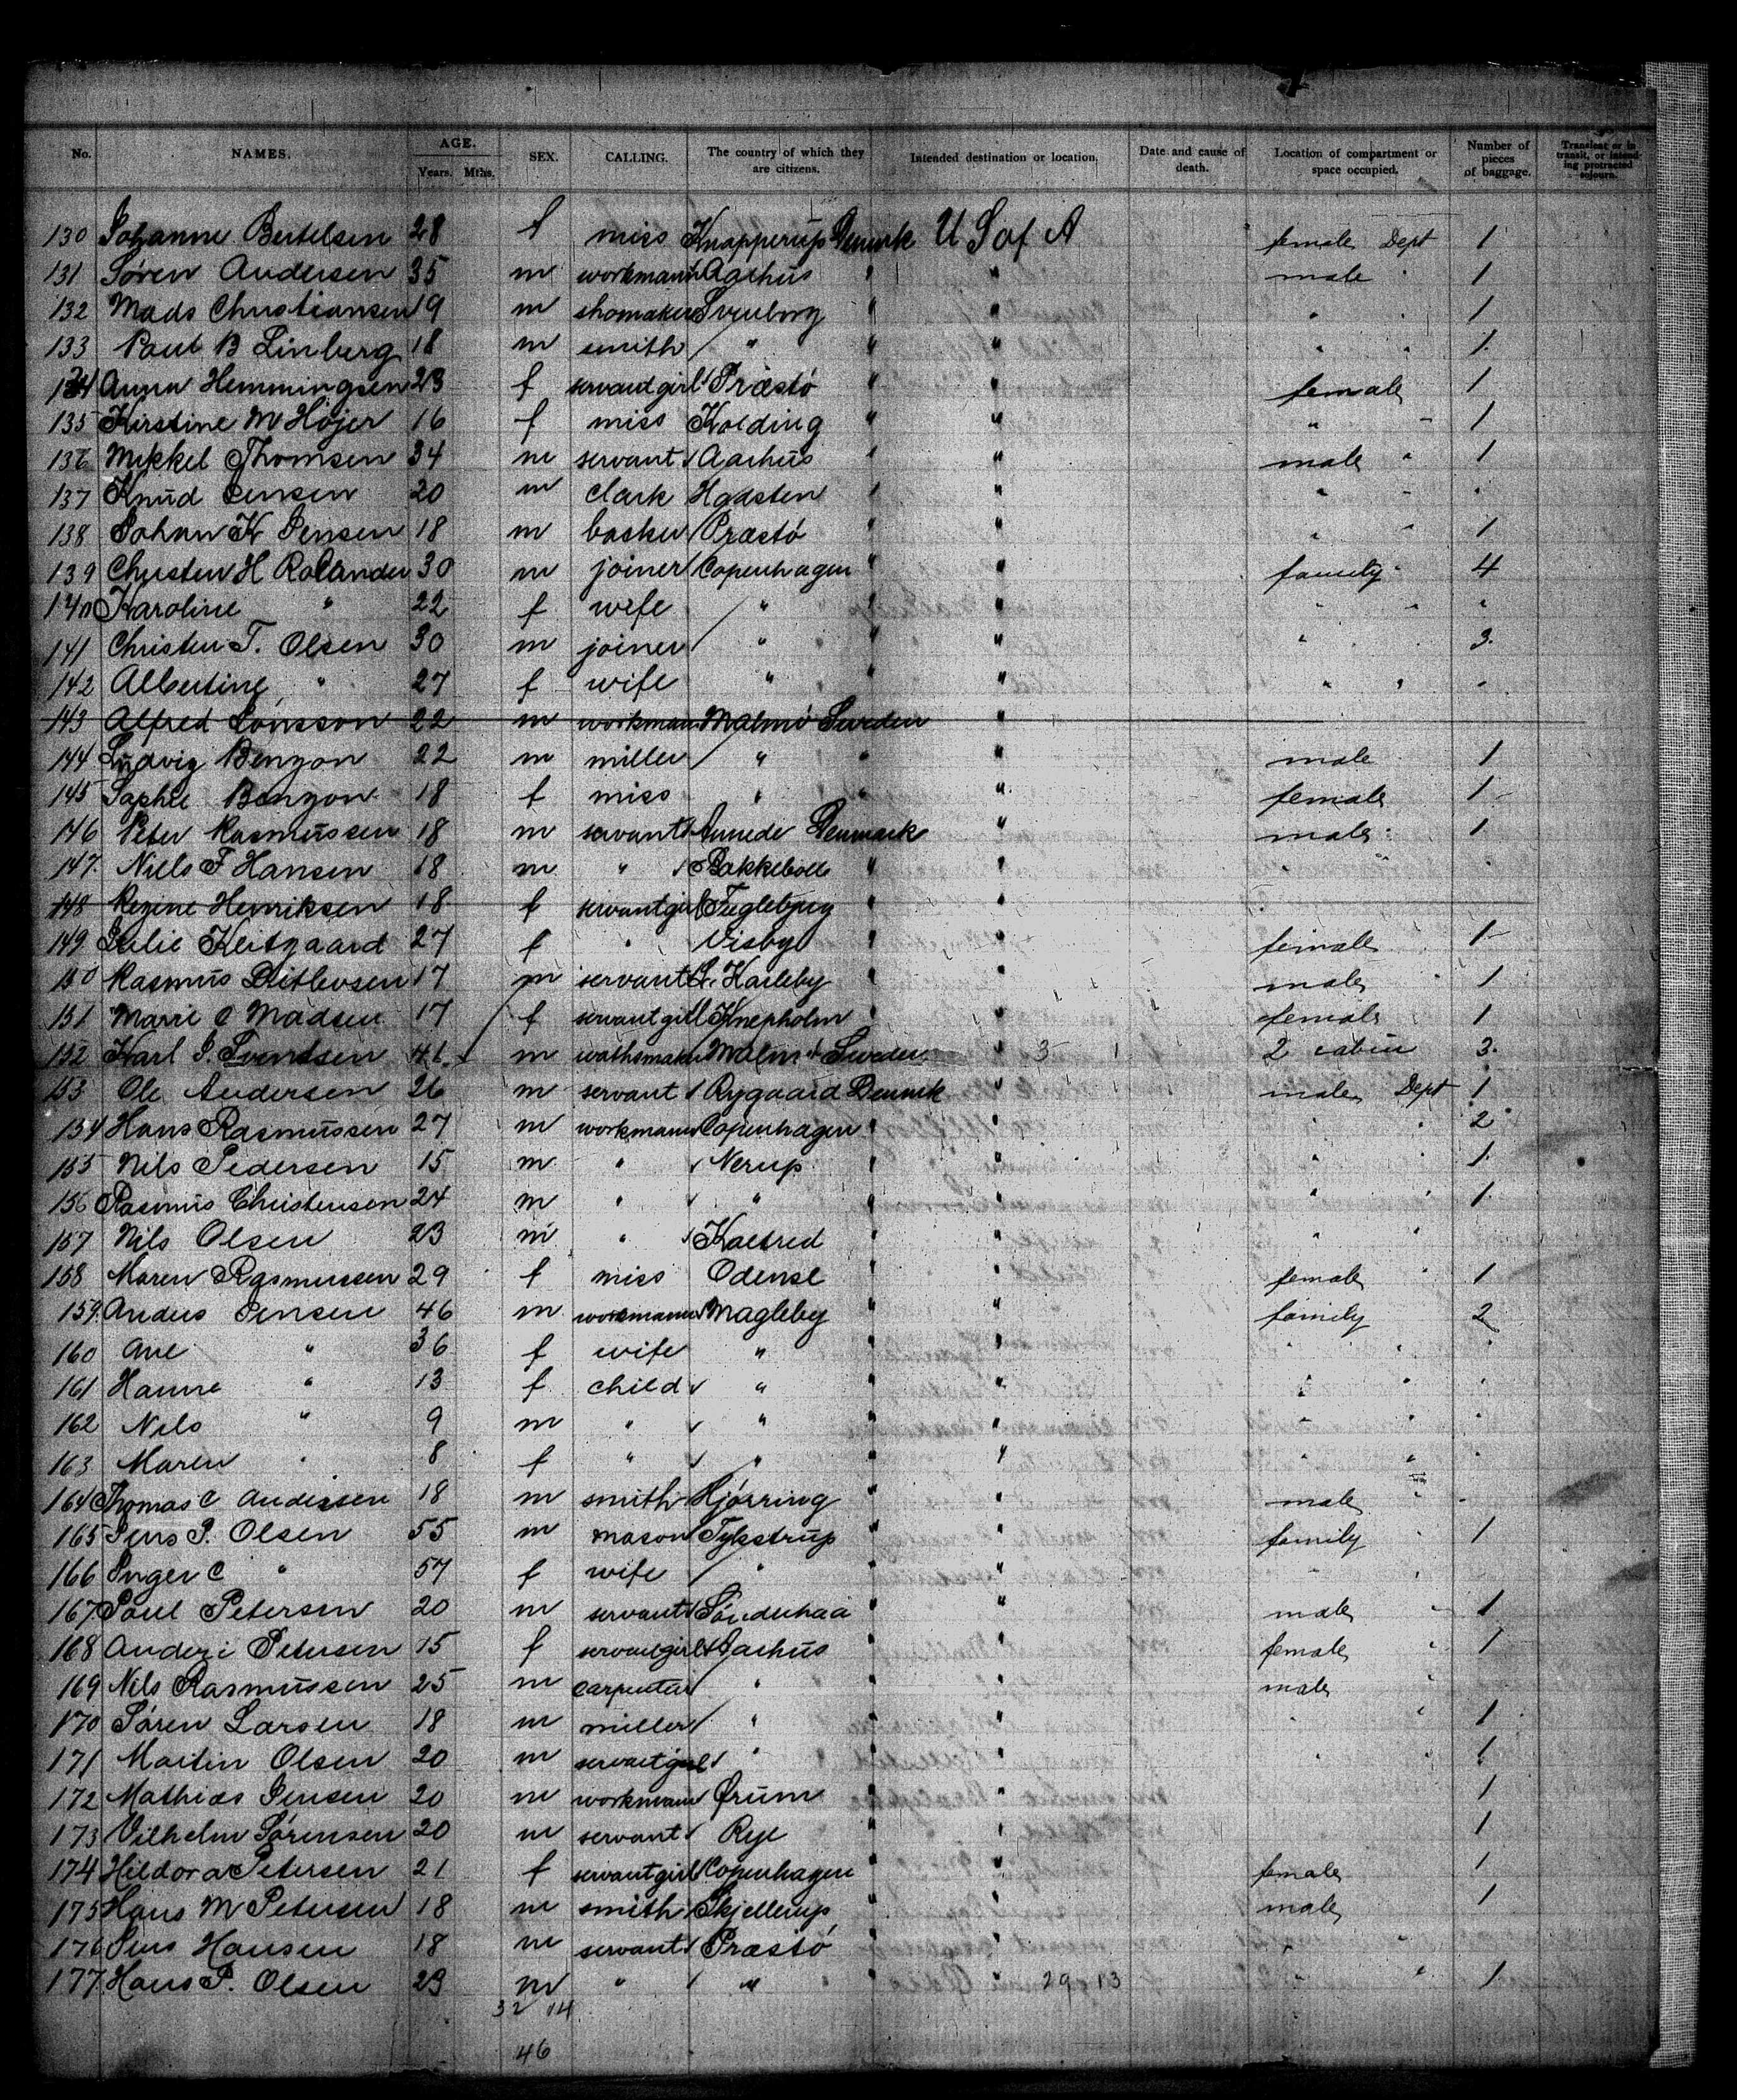 No. NAMES. AGE. Years. Mths. SEX. CALLING. The country of which they are citizens. Intended destination or location. Date and cause of death. Location of compartment or space occupied. Number of pieces of baggage. Transient or in transit, or intending protracted sojourn.
130 Johanne Bertelsen 28 f miss Knapperup Denmrk U S of A female Dept 1
131 Søren Andersen 35 m workmann Aarhus " " male " 1
132 Mads Christiansen 19 m shomaker Svenborg " " " " 1
133 Paul B Linberg 18 m smith / " " " " " 1
134 Anna Hemmingsen 23 f servandgirl Præstö " " female 1
135 Kirstine M Höjer 16 f miss Kolding " " " " 1
136 Mikkel Thomsen 34 m servant / Aarhus " " male " 1
137 Knud Jensen 20 m clark Hadsten " " " " "
138 Johan K Jensen 18 m backer / Præstö " " " " 1
139 Christen H Rolander 30 m joiner / Copenhagen " " family " 4
140 Karoline " 22 f wife / " " " " " "
141 Christen T. Olsen 30 m joiner / " " " " " 3
142 Albertine " 27 f wife " " " " " "
143 Alfred Jönsson 22 m workman Malmö Sweden "
144 Ludvig Benzon 22 m miller / " " " male 1
145 Sophie Benzon 18 f miss " " " female 1
146 Peter Rasmussen 18 m servant / Annede Denmark " male " 1
147. Niels F Hansen 18 m " / Bakkebölle " " " " "
148 Regine Henriksen 18 f servantgirl Fuglebjerg " "
149 Julie Kleitgaard 27 f " Visby " " female 1
150 Rasmus Ditlevsen 17 m servant / St. Karleby " " male " 1
151 Marie C Madsen 17 / f servantgirl Knepholm " " female 1
152 Karl J. Svendsen 41 m wathsmaker Malmö Sweden " 3 1 2 cabin 3
153 Ole Andersen 26 m servant / Rygaard Denmrk " male Dept 1
154 Hans Rasmussen 27 m workmann Copenhagen " " " " 2
155 Nils Pedersen 15 m " / Nerup " " " " 1
156 Rasmus Christensen 24 m " / " " " " " 1
157 Nils Olsen 23 m " / Kaetred " " " "
158 Maren Rasmussen 29 f miss Odense " " female " 1
159. Anders Jensen 46 m workmann Magleby " " family 2
160 Ane " 36 f wife " " " " " "
161 Hanne " 13 f child / " " " " " "
162 Nils " 9 m " / " " " " " "
163 Maren " 8 f " / " " " " " "
164 Thomas C Andersen 18 m smith Hjörring " " male " "
165 Jens P. Olsen 55 m mason / Tykstrup " " family " 1
166 Inger C " 57 f wife / " " " " "
167 Poul Petersen 20 m servant / Sönderhaa " " male " 1
168 Petersen 15 f servantgirl Aarhus " " female " 1
169 Nils Rasmussen 25 m carpenter / " " " male "
170 Sören Larsen 18 m miller / " " " " " 1
171 Martin Olsen 20 m servantgirl / " " " " " 1
172 Mathias Jensen 20 m workmann Ørum " " 1
173 Vilhelm Sørensen 20 m servant / Rye " " 1
174 Hildora Petersen 21 f servantgirl Copenhagen " " female 1
175 Hans M Petersen 18 m smith / Skjellerup " " male 1
176 Jens Hansen 18 m servant / Præstö " " " "
177 Hans P. Olsen 23 m " / " " " 29 13 " " 1
32 14
46